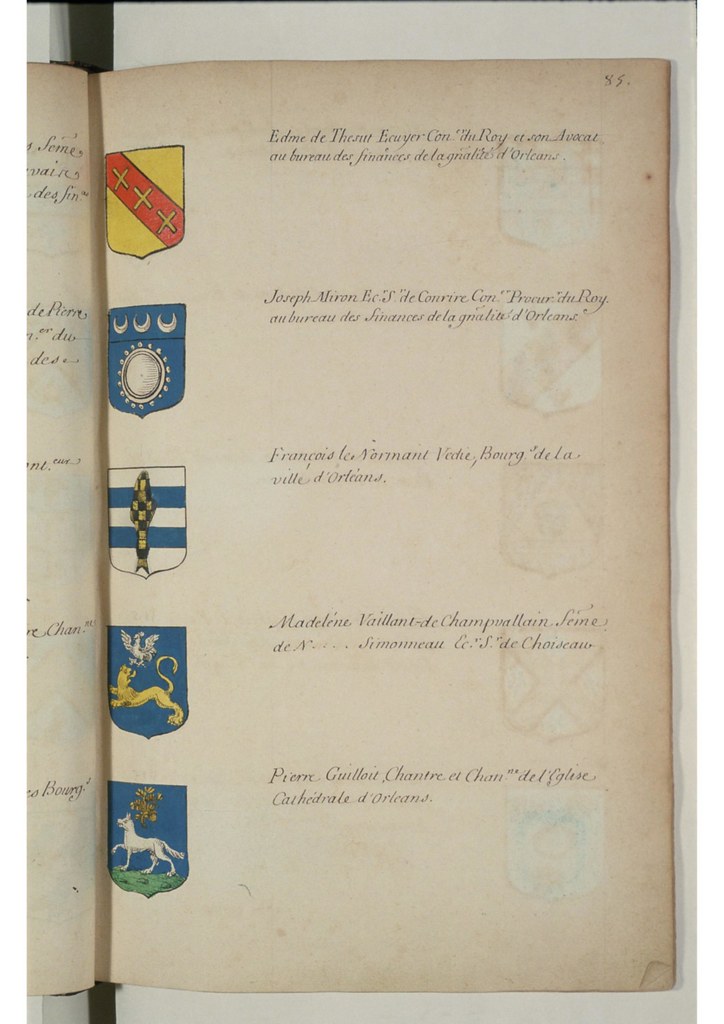 85.
Edme de Thesut Ecuyer Con.r du Roy et son Avocat
au bureau des finances de la gñalité d'Orleans.
Joseph Miron Ec.r S.r de Conrire Con.er Procur.r du Roy
au bureau des finances de la gñalité d'Orleans.
François le Normant Vedie, Bourg.s de la
ville d'Orléans.
Madeléne Vaillant de Champvallain feme
de N.... Simonneau Ec.r S.r de Choiseau
Pierre Guilloit, Chantre et Chan.ne de l'Eglise
Cathédrale d'Orleans.
feme
vaire
des fin.
de Pierre
du
des
nt.eur
re Chan.ne
es Bourg.s